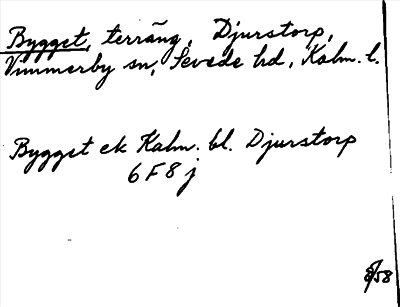 Bygget, terräng, Djurstorp,
Vimmerby sn, Sevede hd, Kalm. l.
Bygget ek Kalm. bl. Djurstorp
6 F 8 j